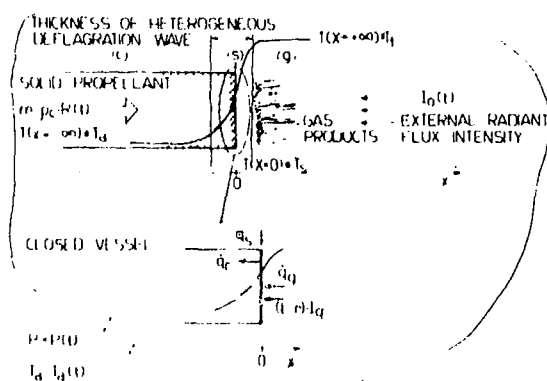 THICKNESS OF HETEROGENEOUS
DEFLAGRATION WAVE
(c) (s) (g)
T(x=+∞)=T_f
SOLID PROPELLANT
m=ρ_c·R(t)
T(x=-∞)=T_d
GAS
PRODUCTS
I_0(t)
EXTERNAL RADIANT
FLUX INTENSITY
0 T(x=0)=T_s
x
CLOSED VESSEL
q_s
q_r
q_g
P=P(t)
T_d=T_d(t)
0 x